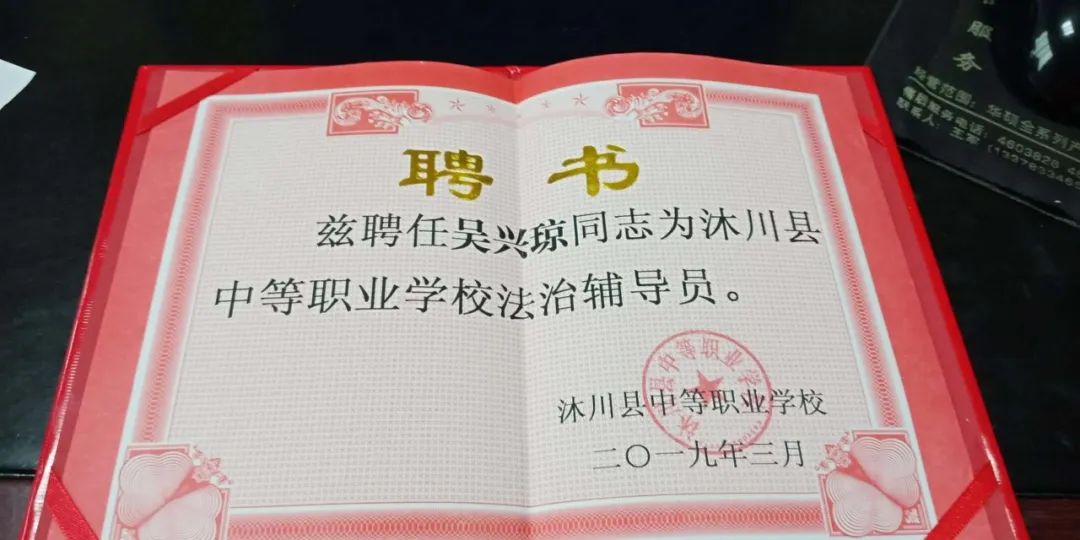 聘书
兹聘任吴兴琼同志为沐川县
中等职业学校法治辅导员。
沐川县中等职业学校
沐川县中等职业学校
二〇一九年三月
服务
经营范围：华硕全系列产
联系人：王军